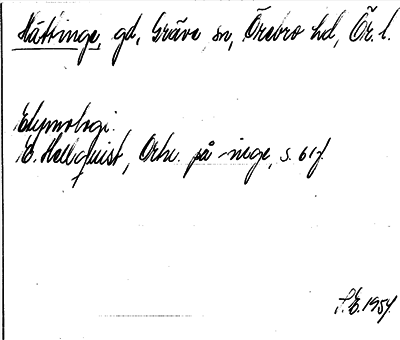 Hättinge, gd, Gräve sn, Örebro hd, Ör. l.
Etymologi.
E. Hellquist, Ortn. på -inge, s. 61f.
S.E. 1954